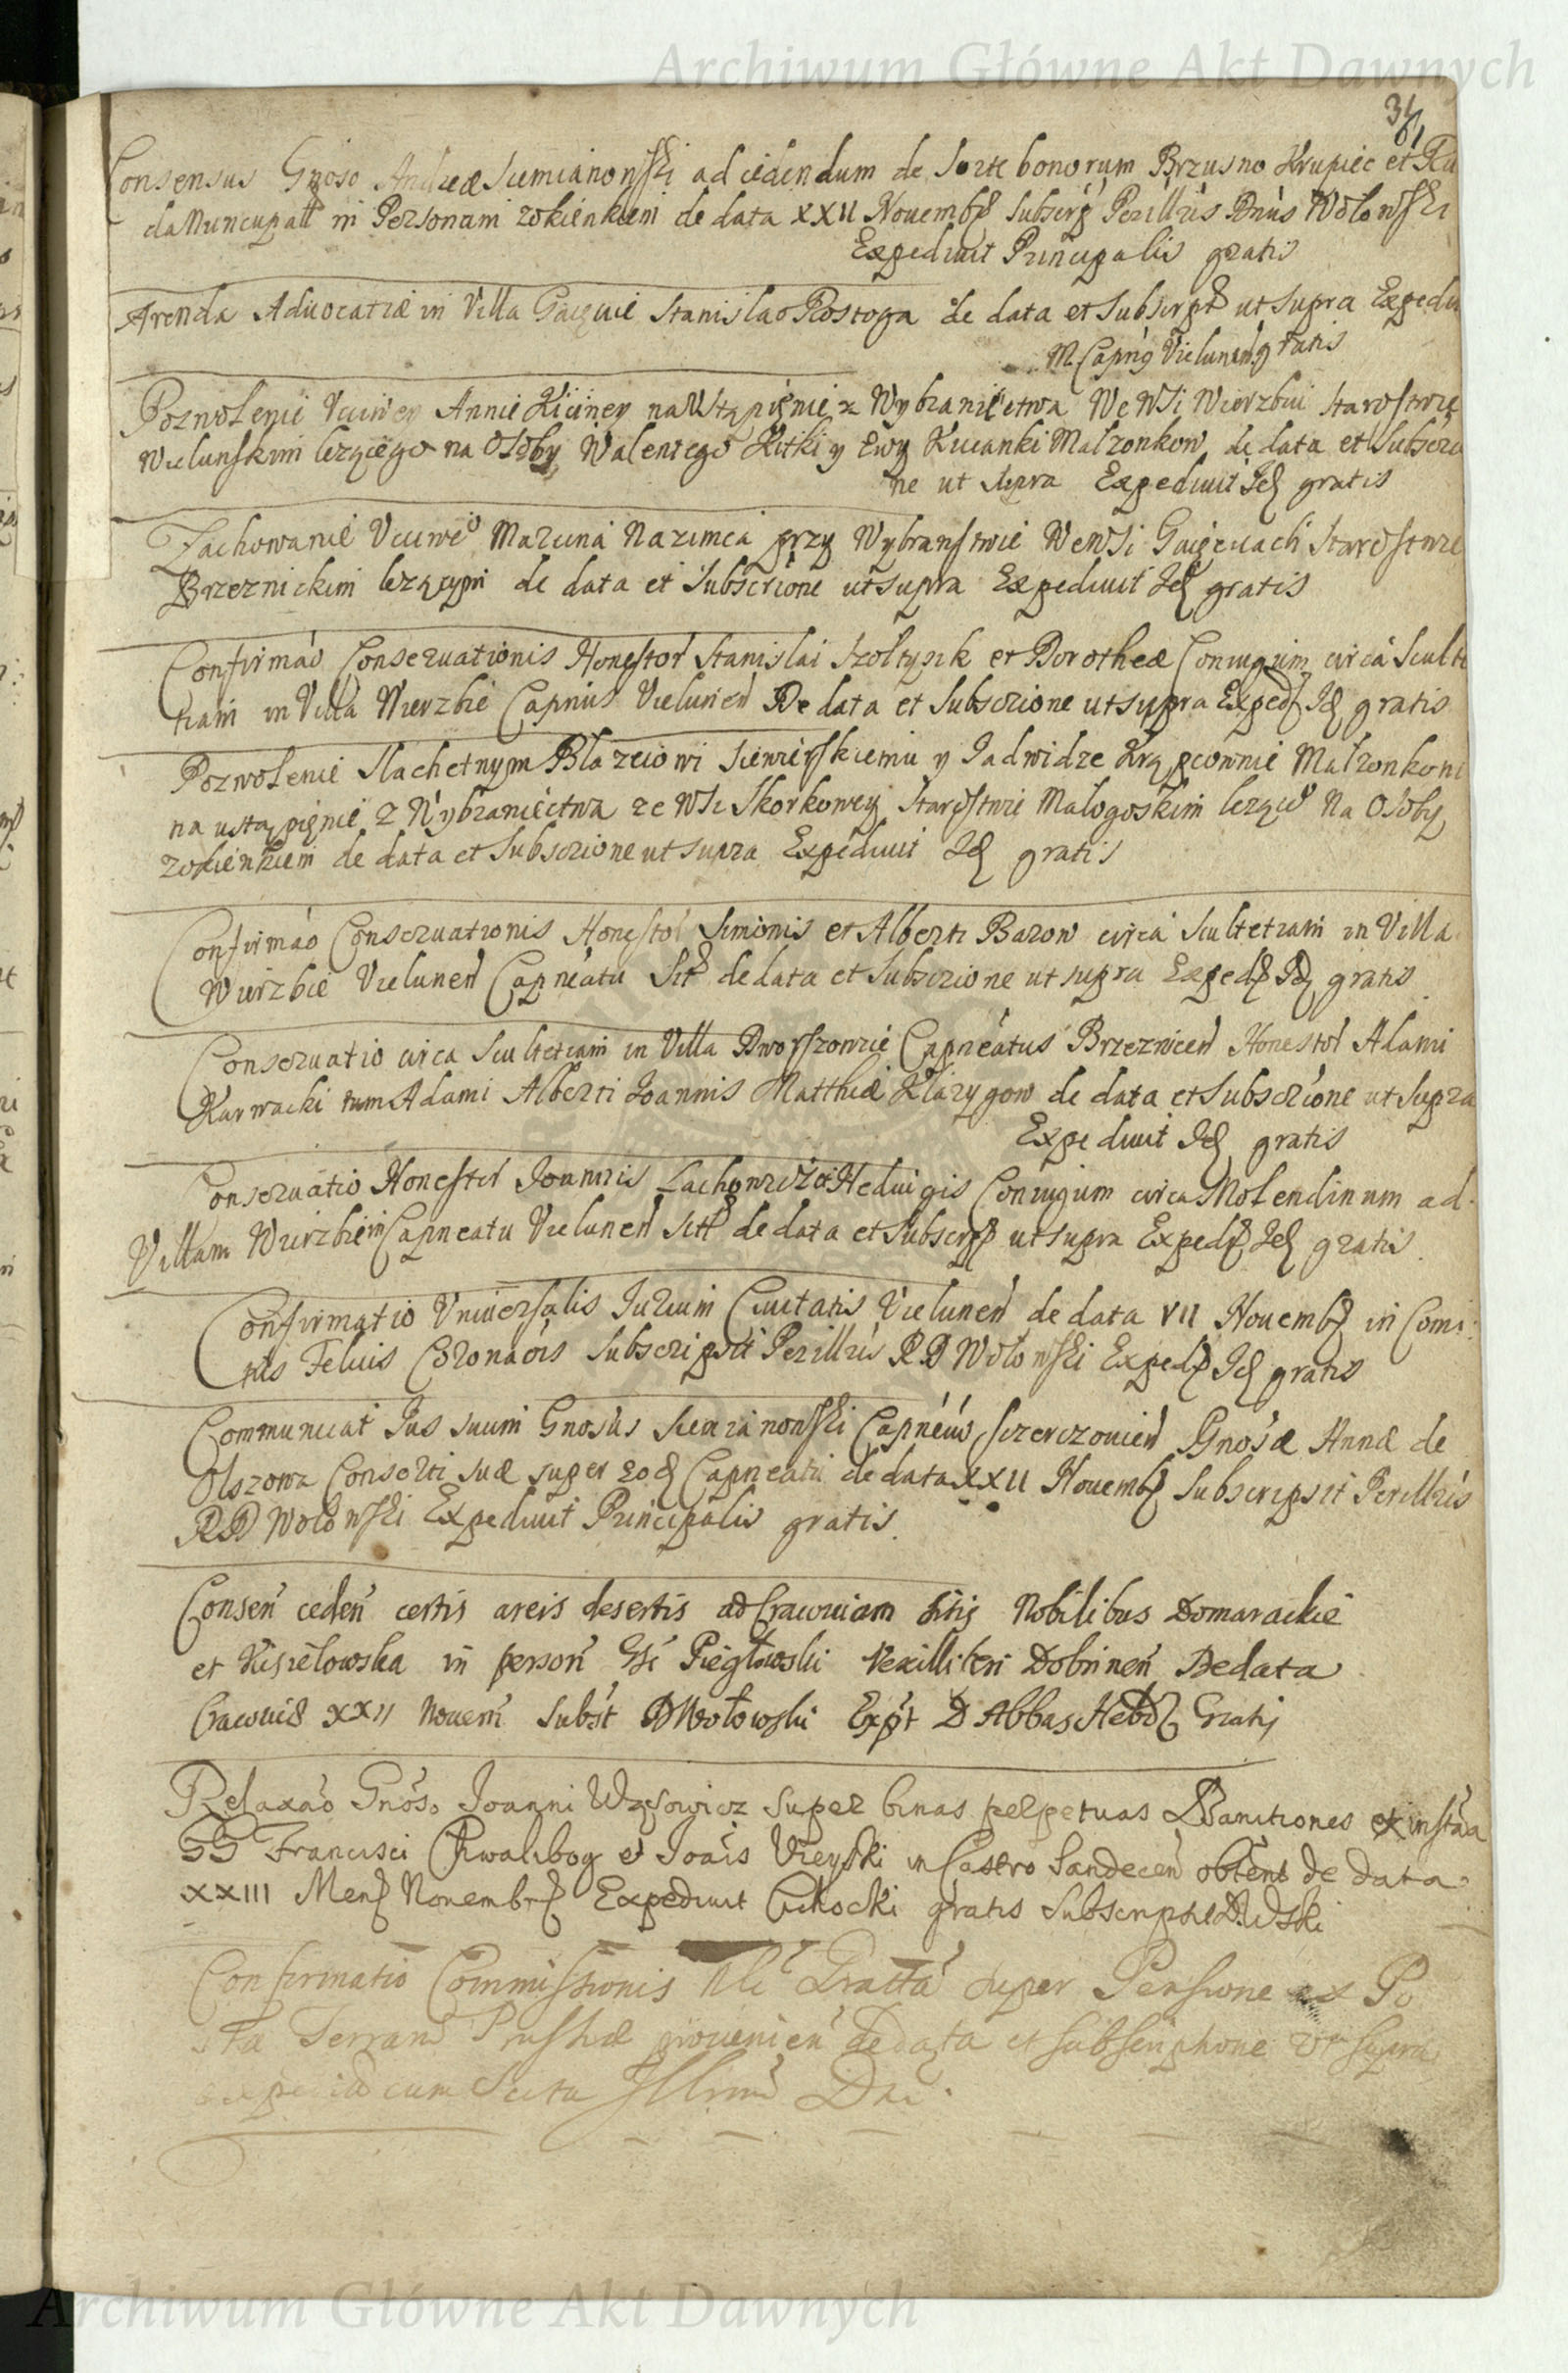 Archiwum Główne Akt Dawnych
34
61
Consensus Gnoso Andreæ Siemianowski ad cedendum de sorte bonorum Brzusno Krupiec et Ru
da Nuncupatt in Personam zokienkiem de data XXII Nouemb subscrip Perillris Dnus Wołowski
Expediuit Principalis gratis
Arenda Aduocatiæ in Villa Gaięcice Stanislao Rostoga de data et subscript ut supra Expediu
M Capny Vielunen gratis
Pozwolenie Vcciwey Annie Kiciney na Vstąpięnie z Wybraniectwa We WSi Wierzbiu Starostwie
Wielunskim lezącego na Osoby Walentego Kitki y Ewy Kucianki Małzonkow de data et subscri
ne ut supra Expediuit Id gratis
Zachowanie Vcciwe Marcina Nazimca przy Wybranstwie We WSi Gaięcicach Starostwie
Brzeznickim lezącym de data et subscrione ut supra Expediuit Id gratis
Confirmao Conseruationis Honestor Stanislai Szołtysik et Dorotheæ Coniugum circa Scult
tiam in Villa Wierzbie Capnius Vielunen De data et subscrione ut supra Exped Id gratis
Pozwolenie Slachetnym Błazeiowi Siewierskiemu y Jadwidze Krąpcownie Małzonkom
na ustąpięnie z Wybraniectwa ze WSi Skorkowey Starostwie Małogoskim lezące Na Osoby
zokienkiem de data et subscrione ut supra Expediuit Id gratis
Confirmao Conseruationis Honestor Simonis et Alberti Baron circa Scultetiam in Villa
Wierzbie Vielunen Capneatu Sit de data et subscrione ut supra Exped Id gratis
Conseruatio circa Scultetiam in Villa Dworszowice Capneatus Brzeznicen Honestor Adami
Karwacki tum Adami Alberti Joannis Matthiæ Kłarygow de data et subscrione ut supra
Expediuit Id gratis
Conseruatio Honestor Joannis Heduigis Coniugum circa Molendinum ad
Villam Wierzbie in Capneatu Vielunen Sit de data et subscrip ut supra Exped Id gratis
Confirmatio Vniuersalis Jurium Ciuitatis Vielunen de data VII Nouemb in Comi
tiis Felcis Coronaois subscripsit Perillris R D Wołowski Exped Id gratis
Communicat Jus suum Gnosus Siemianowski Capneus Szczerczouien Gnosæ Annæ de
Olszowa Consorti suæ super eod Capneatu de data XXII Nouemb subscripsit Perillris
R D Wołowski Expediuit Principalis gratis
Consen ceden certis areis desertis ad Cracouiam sitis Nobilibus Domarackie
et Kisielowska in person Gsi Piegłowski Vexilliferi Dobrinen De data
Cracouiæ XXII Nouem subst D Wołowski Expt D Abbas Hebd Gratis
Relaxao Gnoso Joanni Wąsowicz super binas perpetuas Banitiones ex insta
GG Francisci Chwalibog et Joais Vieyski in Castro Sandecen obtent de data
XXIII Mens Nouembr Expediuit Cichocki gratis subscripsit D. Wski
Confirmatio Commissionis super Pensione ex Po
Terrarum Prussiæ prouenien de data et subscriptione ut supra
cum Illrmi Dni
Archiwum Główne Akt Dawnych